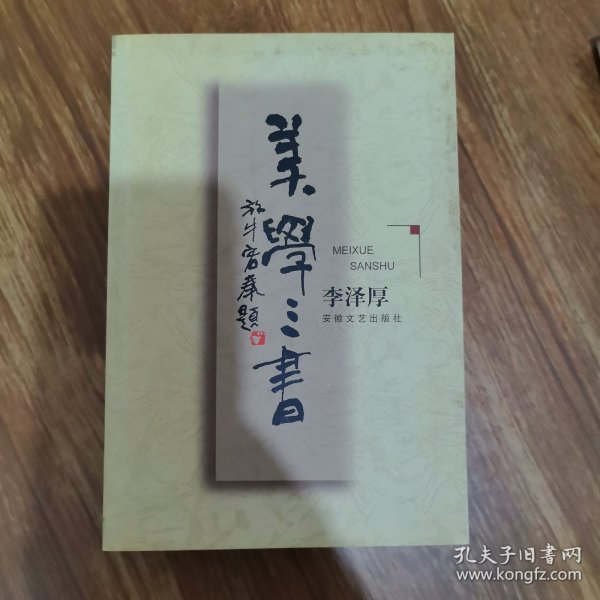 美學三書
MEIXUE
SANSHU
李泽厚
安徽文艺出版社
孔夫子旧書网
www.kongfz.com